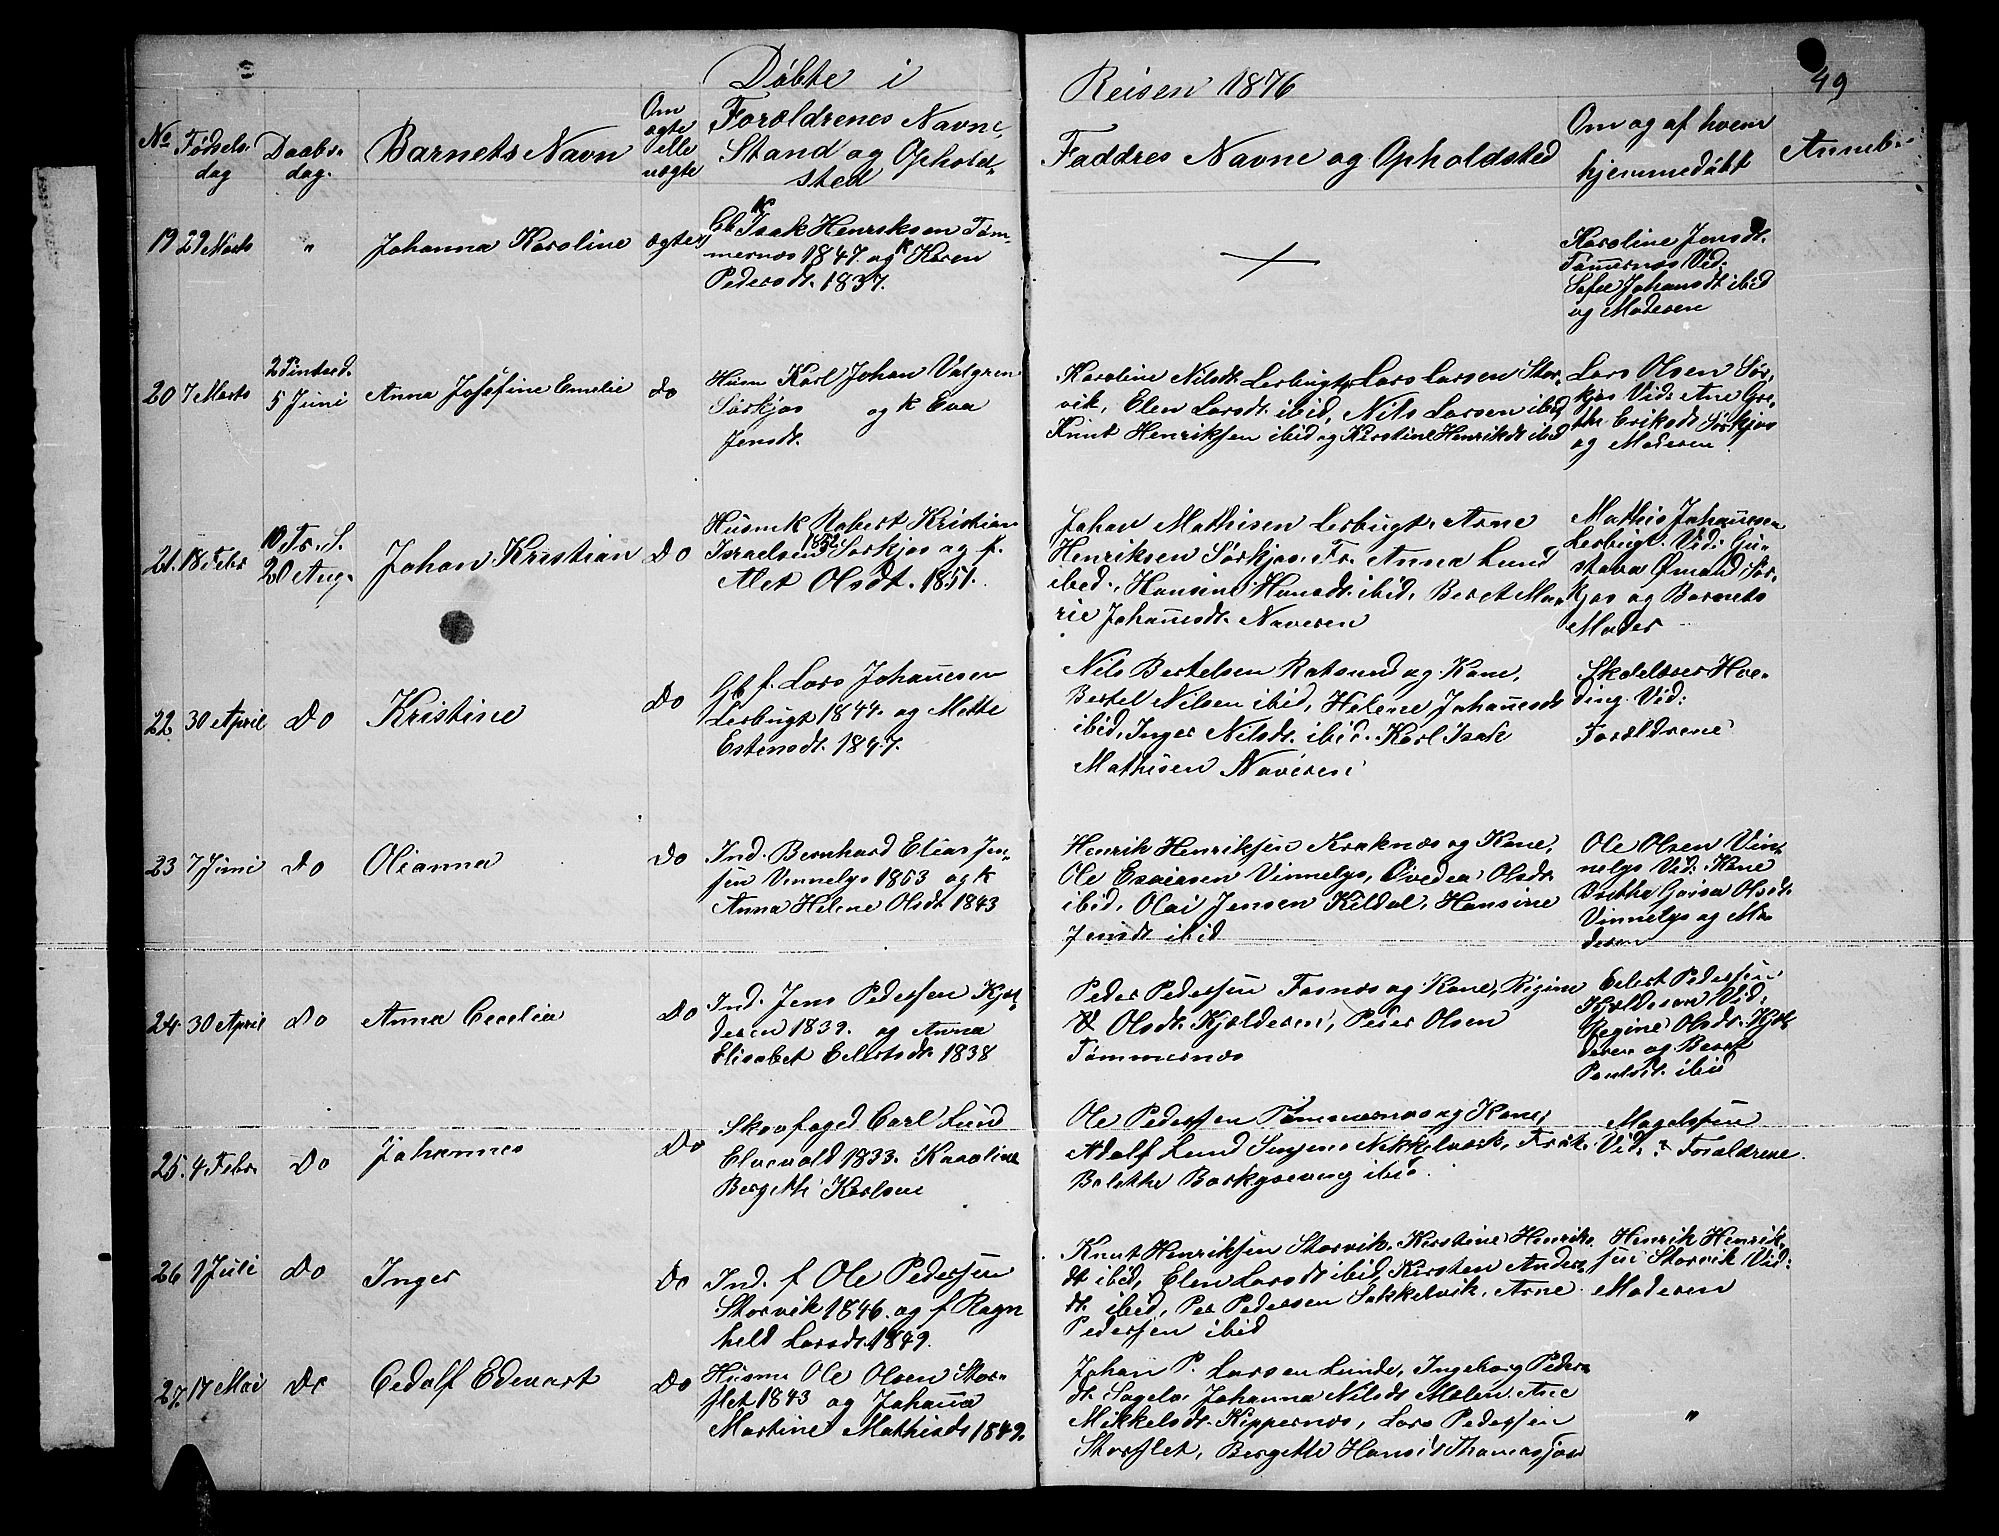 Døbte i Reisen 1876
49
No
Fødsels-
dag
Daabs-
dag.
Barnets Navn
Om
ægte
elle
uægte
Forældrenes Navne,
Stand og Ophold-
sted
Faddres Navne og Opholdsted
Om og af hvem
hjemmedøbt
Anmb.
19 29 Marts " Johanna Karoline ægte
Isak Henriksen Tøm-
mernæs 1847. og K Karen
Pedersdt. 1837.
Karoline Jensdt.
Tømernæs Vid:
Johansdt ibid
og Moderen
20 7 Marts
2 Pintsed.
5 Juni
Anna Josefine Emelie do
Husm Karl Johan Valgren
Sørkjos og K Eva
Jensdt.
Karoline Nilsdt. Lerbugt, Lars Larsen Stor-
vik, Elen Larsdt. ibid, Nils Larsen ibid
Knut Henriksen ibid og Kirstine Henriksdt ibid
Lars Olsen Sør-
kjos Vid: Ane Gre-
the Eriksdt Sørkjos
og Moderen
21. 18 Febr
10 Tr. S.
20 Aug.
Johan Kristian Do
Husm K Robert Kristian
Israelsen 1852 Sørkjos og f.
Alet Olsdt. 1851.
Johan Mathisen Lerbugt. Arne
Henriksen Sørkjos. Fr. Anna Lund
ibid., Hansine Hansdt. ibid, Beret Ma-
rie Johanesdt. Naveren
Mathis Johannesen
Lerbugt. Vid: Gu-
stava Sør-
kjos og Barnets
Moder
22. 30 April Do Kristine Do
Gb f. Lars Johannesen
Lerbugt 1844. og Mette
Estensdt. 1847.
Nils Bertelsen Rotsund og Kone,
Bertel Nilsen ibid, Helene Johannesdt
ibid, Inger Nilsdt. ibid. Karl Isak
Mathisen Naveren
Skolelærer Hoe-
ding. Vid:
Forældrene
23 7 Juni Do Olianna Do
Ind. Bernhard Elias Jen-
sen Vinnelys 1853 og K
Anna Helene Olsdt 1843
Henrik Henriksen Kraknæs og Kone,
Ole Esaiasen Vinnelys, Olsdt
ibid, Olai Jensen Kildal, Hansine
Jensdt ibid
Ole Olsen Vin-
nelys Vid: Kone
Olsdt.
Vinnelys og Mo-
deren
24. 30 April Do Anna Cecelia Do
Ind. Jens Pedersen Kjæl-
deren 1839. og Anna
Elisabet Eilertsdt. 1838
Peder Pedersen Fosnæs og Kone, Regine
Olsdt. Kjælderen, Peder Olsen
Tømmernæs
Eilert Pedersen
Kjælderen Vid:
Regine Olsdt. Kjæl-
deren og Beret
Paulsdt. ibid
25. 4 Febr. Do Johannes Do
Skovfoged Carl Lund
Elvevold 1833. Karoline
Bergette Karlsen
Ole Pedersen Tømmernæs og Kone,
Adolf Lund Senjens Nikkelværk, Frøk.
Bolette Borkgrevink ibid.
Magelssen
Vid: Forældrene.
26 1 Juli Do Inger Do
Ind. f Ole Pedersen
Storvik 1846. og f Ragn
hild Larsdt. 1849.
Knut Henriksen Storvik, Kirstine Henriks
dt ibid, Elen Larsdt ibid, Kirsten Anders
dt. ibid, Per Pedersen Sokkelvik, Arne
Pedersen ibid
Henrik Henrik-
sen Storvik Vid:
Moderen
27. 17 Mai Do Cedolf Edevart Do
Husm Ole Olsen Stor-
slet 1843 og Johana
Martine Mathisdt 1849.
Johan P. Larsen Lunde, Ingeborg Peders
dt. Sagelv. Johanna Nilsdt. Molen, Ane
Mikkelsdt. Kippernæs, Lars Pedersen
Storslet, Bergette
"